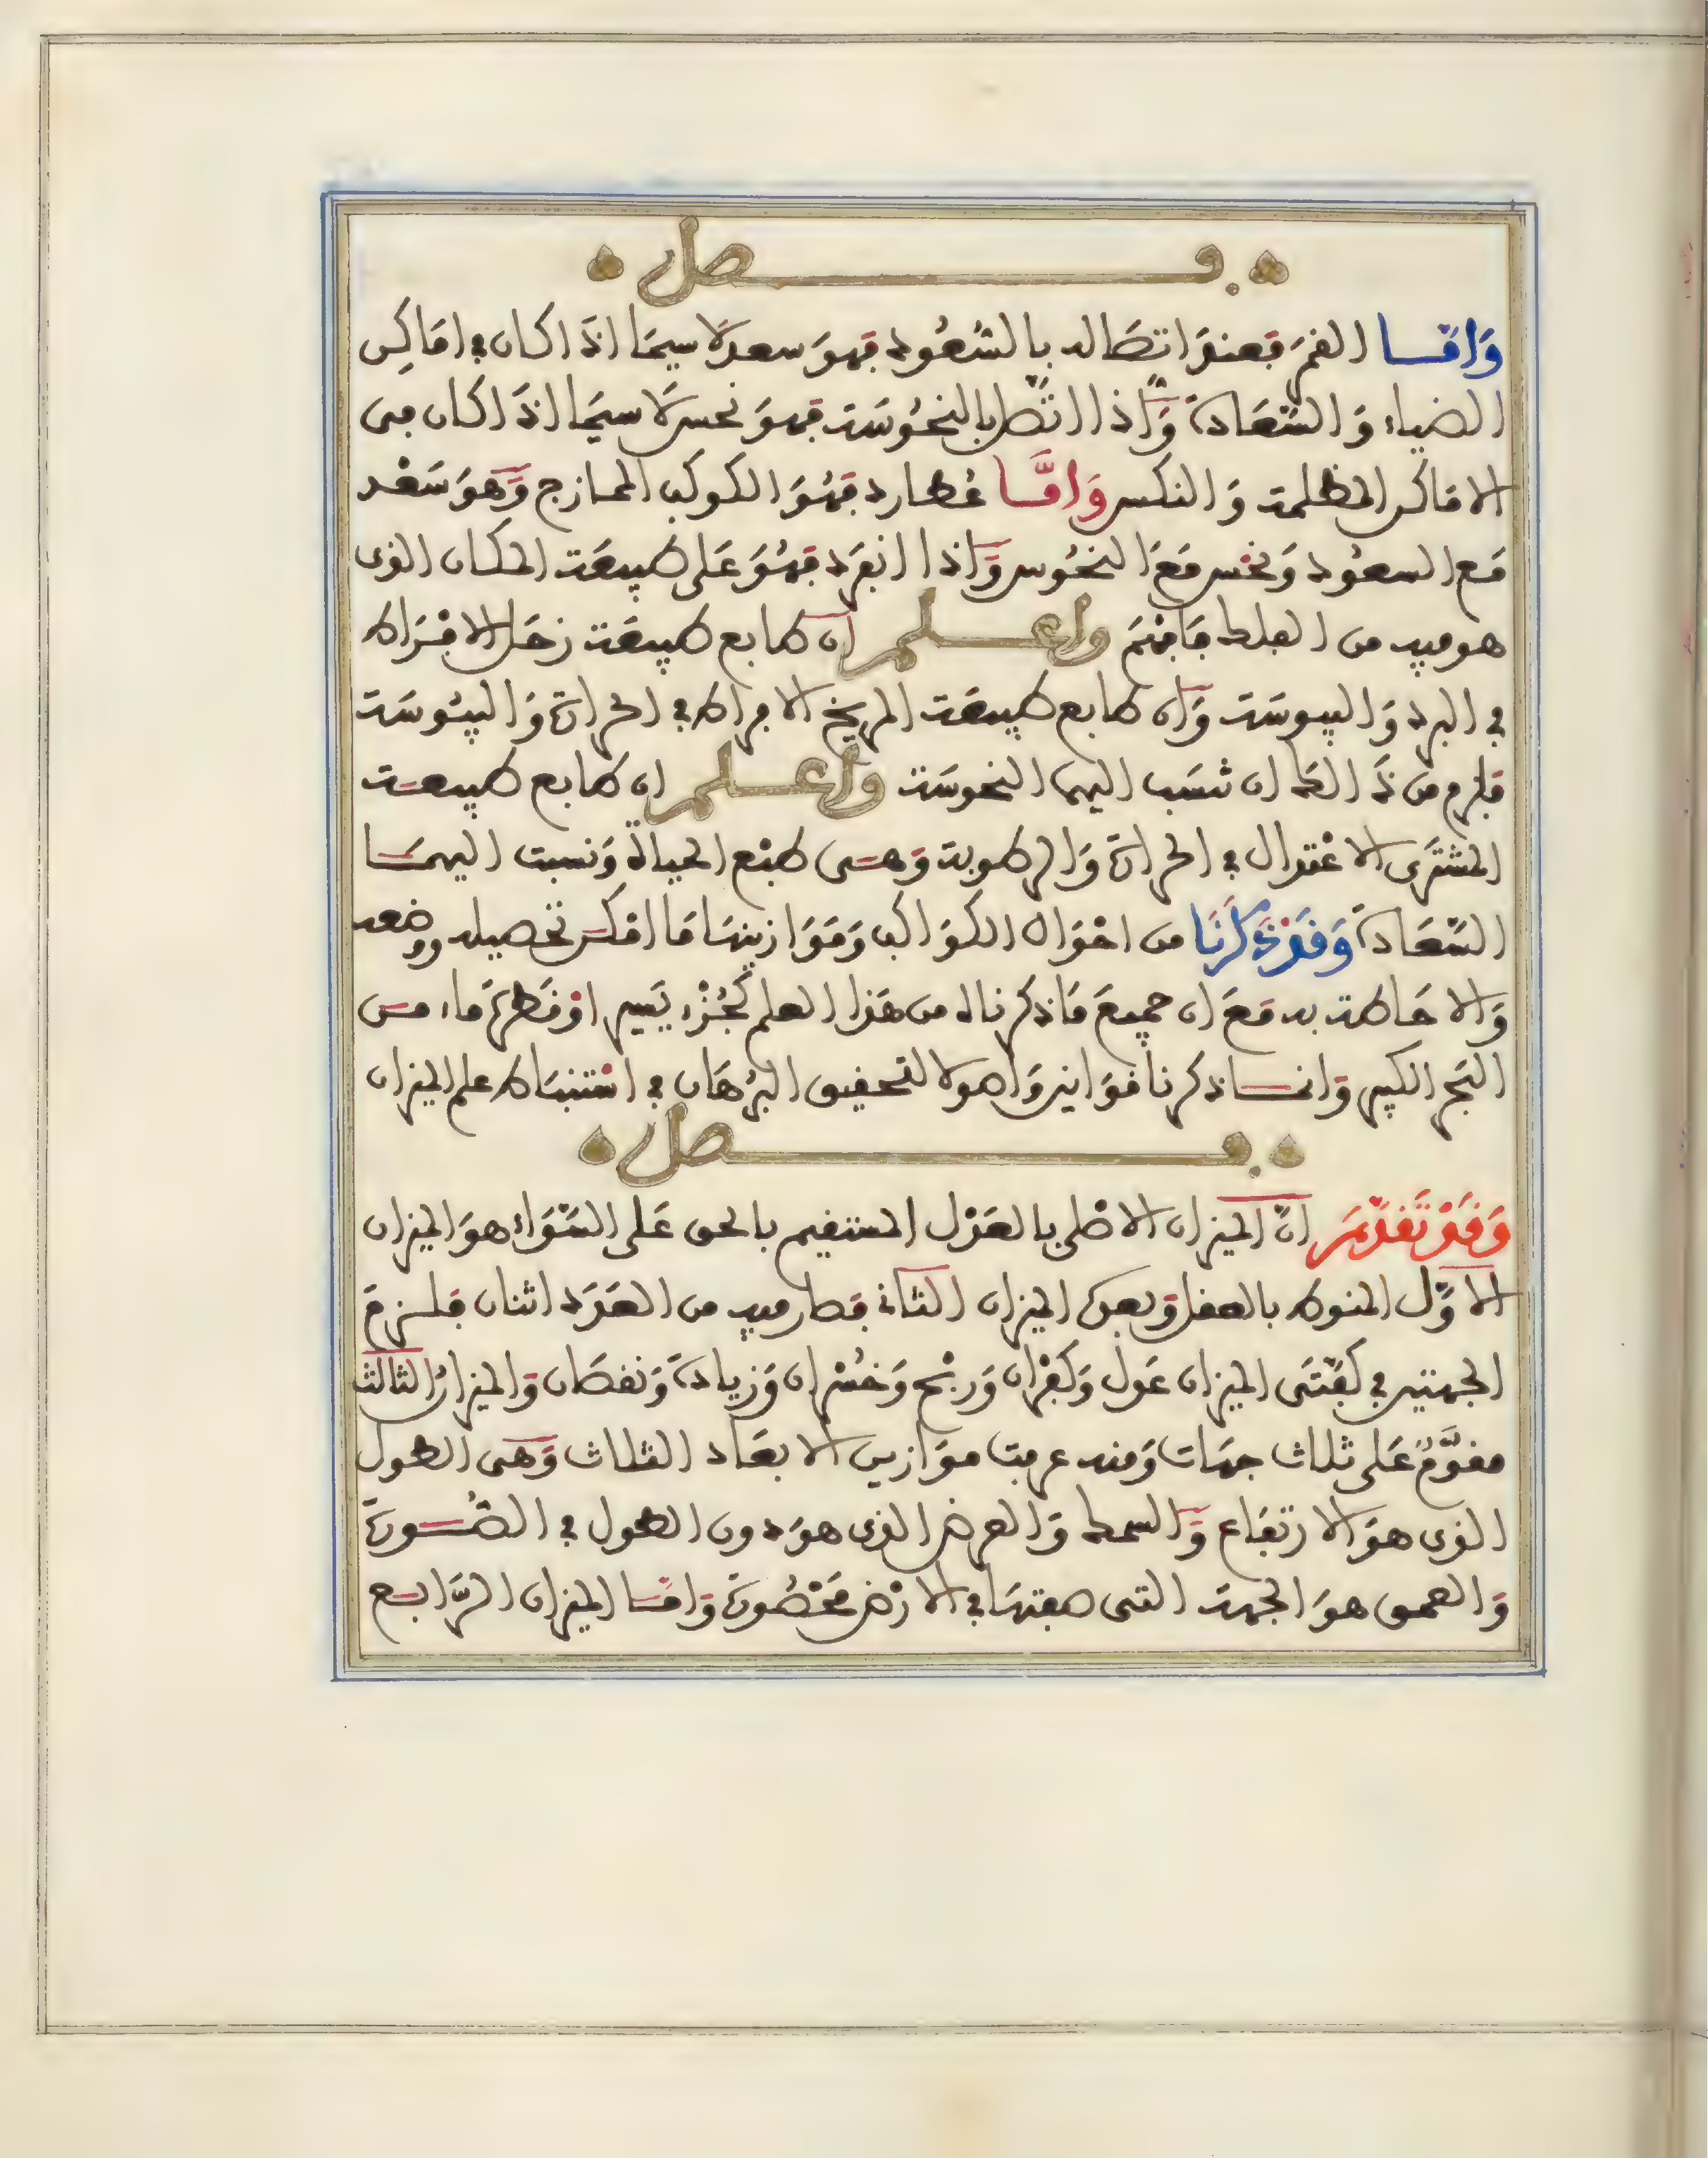 فصل
وَامّا القمَر فعندَ اتصَاله بالسُّعُود فهوَ سعد لَا سيمَا اذَا كان في امَاكِن
الضياء وَالسَّعَادة وَاذا اتّصَل بالنحُوسَة فهوَ نحس لَا سيمَا اذَا كان في
الامَاكن المظلمة وَالنكس وَامَّا عُطارد فهُوَ الكوكب الممازج وَهوَ سَعْد
مَع السعُود وَنحْس مَعَ النحُوس وَاذا انفرَد فهُوَ عَلى طبيعَة المكان الذى
هو فيه من الفلك فَافهَم واعلم ان طابع طبيعَة زحَل الافْرَاط
في البرد وَاليبوسَة وَان طابع طبيعَة المريخ الافراط في الحرارة وَاليبُوسَة
فلزم من ذَالك ان نسَب اليهما النحوسَة واعلم ان طابع طبيعَة
المشترَى الاعْتدال في الحرارة وَالرطوبة وَهى طبْع الحياة وَنسبت اليهمَا
السَّعَادة وَقَدْ ذَكَرْنَا من احْوَال الكوَاكب وَمَوَازينهَا مَا امْكن تحصيله ووضعه
وَالاحَاطة به مَعَ ان جميعَ مَا ذكرناه من هَذا العلم كجُزْء يَسير اوْ قَطرَة مَاء من
البَحر الكبير وَانما ذكرنا قوَانين وَاصولا لتحقيق البُرْهَان في اسْتنبَاط علم الميزان
فصل
وَقَدْ تَقَدَّمَ انّ الميزان الاصْلي بالعَدْل المستقيم بالحق عَلى السَّوَاء هوَ الميزان
الاوّل المنوط بالعقل وَبعدَه الميزان الثَاني فصار فيه من العَدَد اثنان فلزمَ
الجهتين في كفّتَى الميزان عَول وَكفْران وَربْح وَخُسْران وَزيادة وَنقصَان وَالميزانُ الثالث
مقوَّمٌ عَلى ثلاث جهَات وَمنه عرفت موَازين الابعَاد الثلاث وَهى الطول
الذى هوَ الارتفَاع وَالسمك وَالعرض الذى هوَ دون الطول في الصُّورَة
وَالعمق هوَ الجهة التى صفتهَا في الارْض مَحْصُورَة وَامّا الميزان الرَّابع